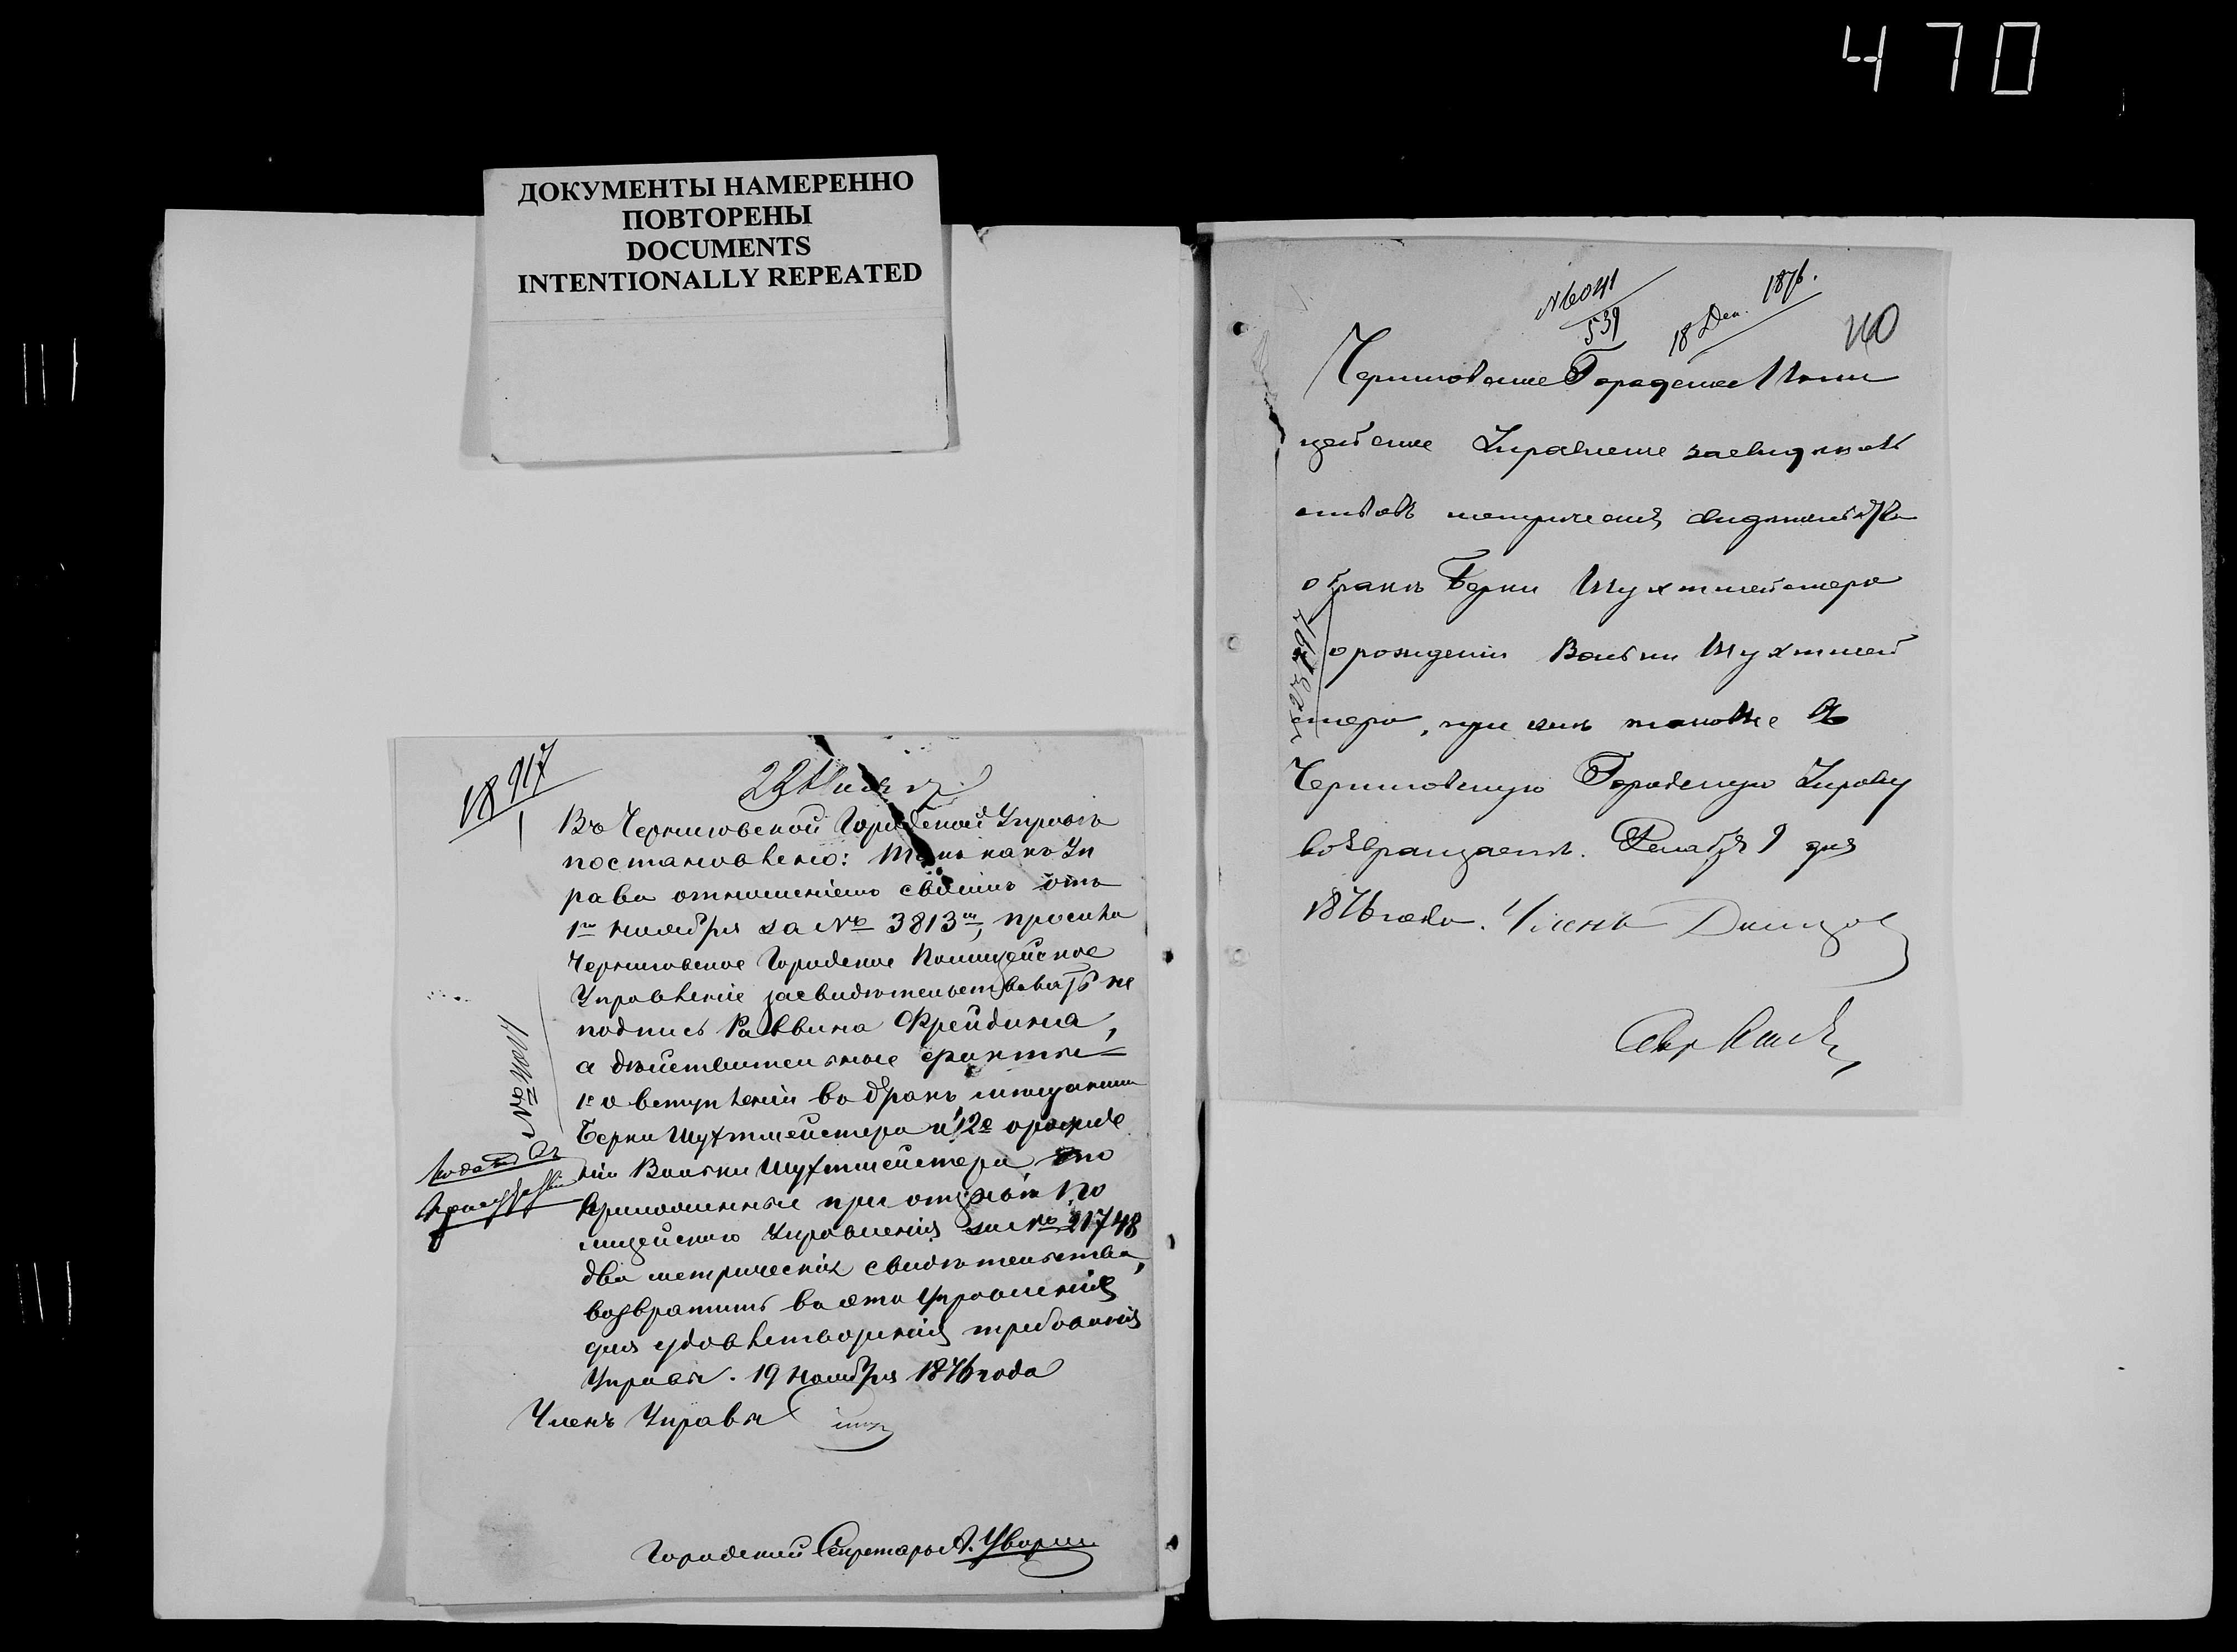 470
ДОКУМЕНТЫ НАМЕРЕННО
ПОВТОРЕНЫ
DOCUMENTS
INTENTIONALLY REPEATED
917
Въ Черниговской Городской Управѣ
постановлено: Такъ какъ Уп
рава отношеніемъ своимъ отъ
1го ноября за № 3813м, просила
Черниговское Городское Полицейское
Управленіе засвидѣтельствовать не
подпись Раввина Фрейдина,
а дѣйствительные факты
1е о вступленіи въ бракъ мѣщанина
Берки Шухтмейстера и 2е о рожде
ніи Вольки Шухтмейстера, то
приложенные при отзывѣ По
лицейскаго Управленія за № 21748
два метрическіх свидѣтельства,
возвратить въ это Управленіе
для удовлетворенія требованія
Управы. 19 Ноября 1876 года
Членъ Управы
Городской Секретарь А.
№ 6041
539
18 Дек. 1876.
Черниговское Городское Поли
цейское Управленіе засвидѣтель
ствовавъ метрическія свидѣтельства
о бракѣ Берки Шухтмейстера
о рожденіи Вольки Шухтмей
стера, при семъ таковые въ
Черниговскую Городскую Управу
возвращаетъ. Декабря 9 дня
1876 года. Членъ
Секр